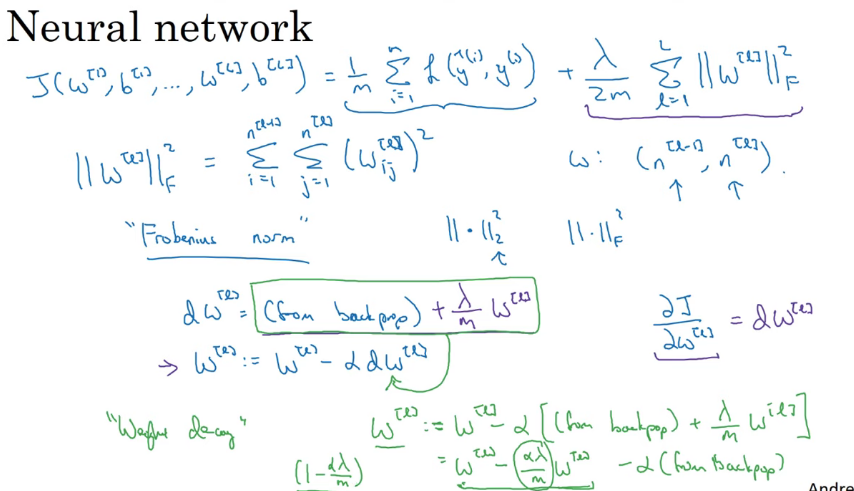 Neural network
J(w^[1], b^[1], ..., w^[L], b^[L]) = 1/m Σ_{i=1}^{m} L(ŷ^(i), y^(i)) + λ/2m Σ_{l=1}^{L} ||W^[l]||_F^2
||W^[l]||_F^2 = Σ_{i=1}^{n^[l-1]} Σ_{j=1}^{n^[l]} (W_ij^[l])^2 w: (n^[l-1], n^[l]).
"Frobenius norm" ||·||_2^2 ||·||_F^2
dW^[l] = (from backprop) + λ/m W^[l] ∂J/∂W^[l] = dW^[l]
→ W^[l] := W^[l] - α dW^[l]
"Weight decay" W^[l] := W^[l] - α [(from backprop) + λ/m W^[l]]
(1 - αλ/m) = W^[l] - αλ/m W^[l] - α (from backprop)
Andre